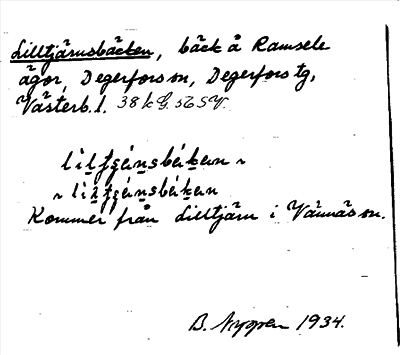 Lilltjärnsbäcken, bäck å Ramsele
ägor, Degerfors sn, Degerfors tg,
Västerb. l. 38 k G. 56 SV.
Kommer från Lilltjärn i Vännäs sn.
B. Nygren 1934.